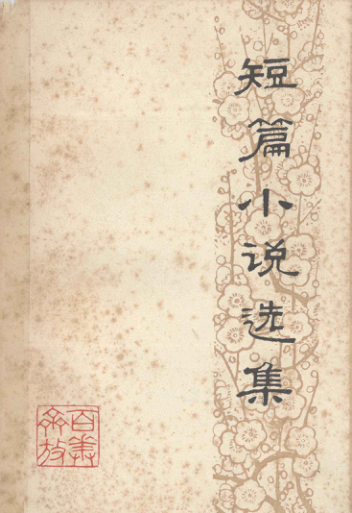 短篇小说选集
百花齐放